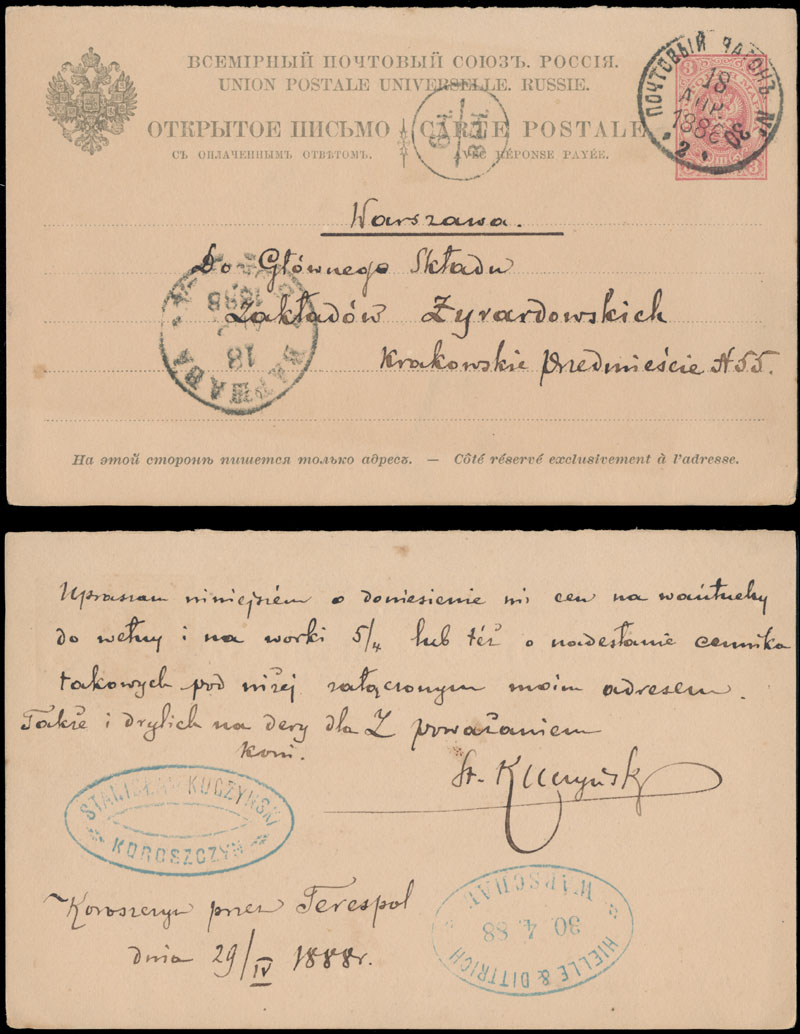 ВСЕМІРНЫЙ ПОЧТОВЫЙ СОЮЗЪ. РОССІЯ.
UNION POSTALE UNIVERSELLE. RUSSIE.
ОТКРЫТОЕ ПИСЬМО CARTE POSTALE
СЪ ОПЛАЧЕННЫМЪ ОТВѢТОМЪ. AVEC RÉPONSE PAYÉE.
ПОЧТОВЫЙ ВАГОНЪ №30
18
АПР.
1888
2
Warszawa.
Do Głównego Składu
Zakładów Zyrardowskich
Krakowskie Przedmieście N 55.
ВАРШАВА
18
1888
На этой сторонѣ пишется только адресъ. — Côté réservé exclusivement à l'adresse.
Upraszam niniejszém o doniesienie mi cen na wańtuchy
do wełny i na worki 5/4 lub téż o nadesłanie cennika
takowych pod niżej załączonym moim adresem.
Także i drylich na dery dla
koni.
Z poważaniem
St. Kuczyński
STANISŁAW KUCZYŃSKI
KOROSZCZYN
Koroszczyn przez Terespol
dnia 29/IV 1888r.
HIELLE & DITTRICH
30. 4. 88
WARSCHAU